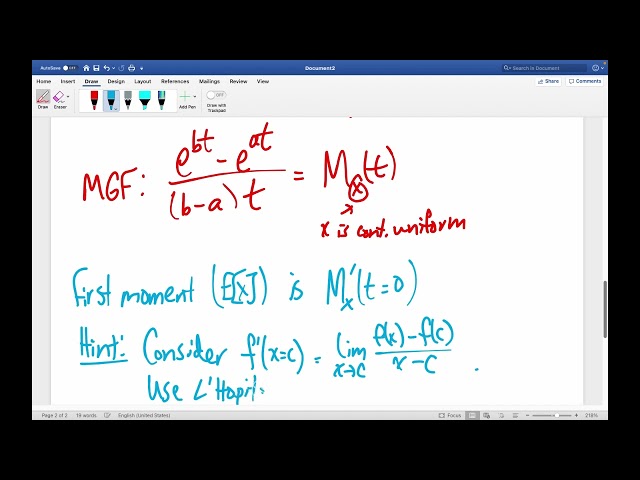 AutoSave OFF Document2 Search in Document
Home Insert Draw Design Layout References Mailings Review View Share Comments
Draw Eraser Add Pen Draw with Trackpad OFF
MGF: (e^{bt} - e^{at}) / ((b-a)t) = M_x(t)
x is cont. uniform
First moment (E[X]) is M'_x(t=0)
Hint: Consider f'(x=c) = lim_{x→c} (f(x)-f(c)) / (x-c) .
Use L'Hopit
Page 2 of 2 19 words English (United States) Focus 218%